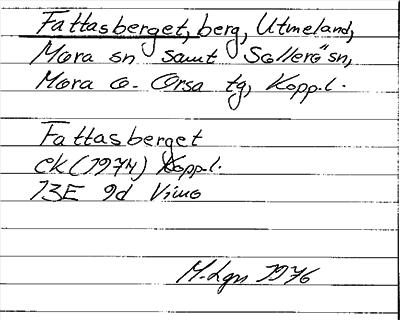 Fattasberget, berg, Utmeland,
Mora sn samt Sollerö sn,
Mora o. Orsa tg, Kopp.l.
Fattasberget
ek (1974) Kopp.l.
13E 9d Vimo
M.Lgn 1976